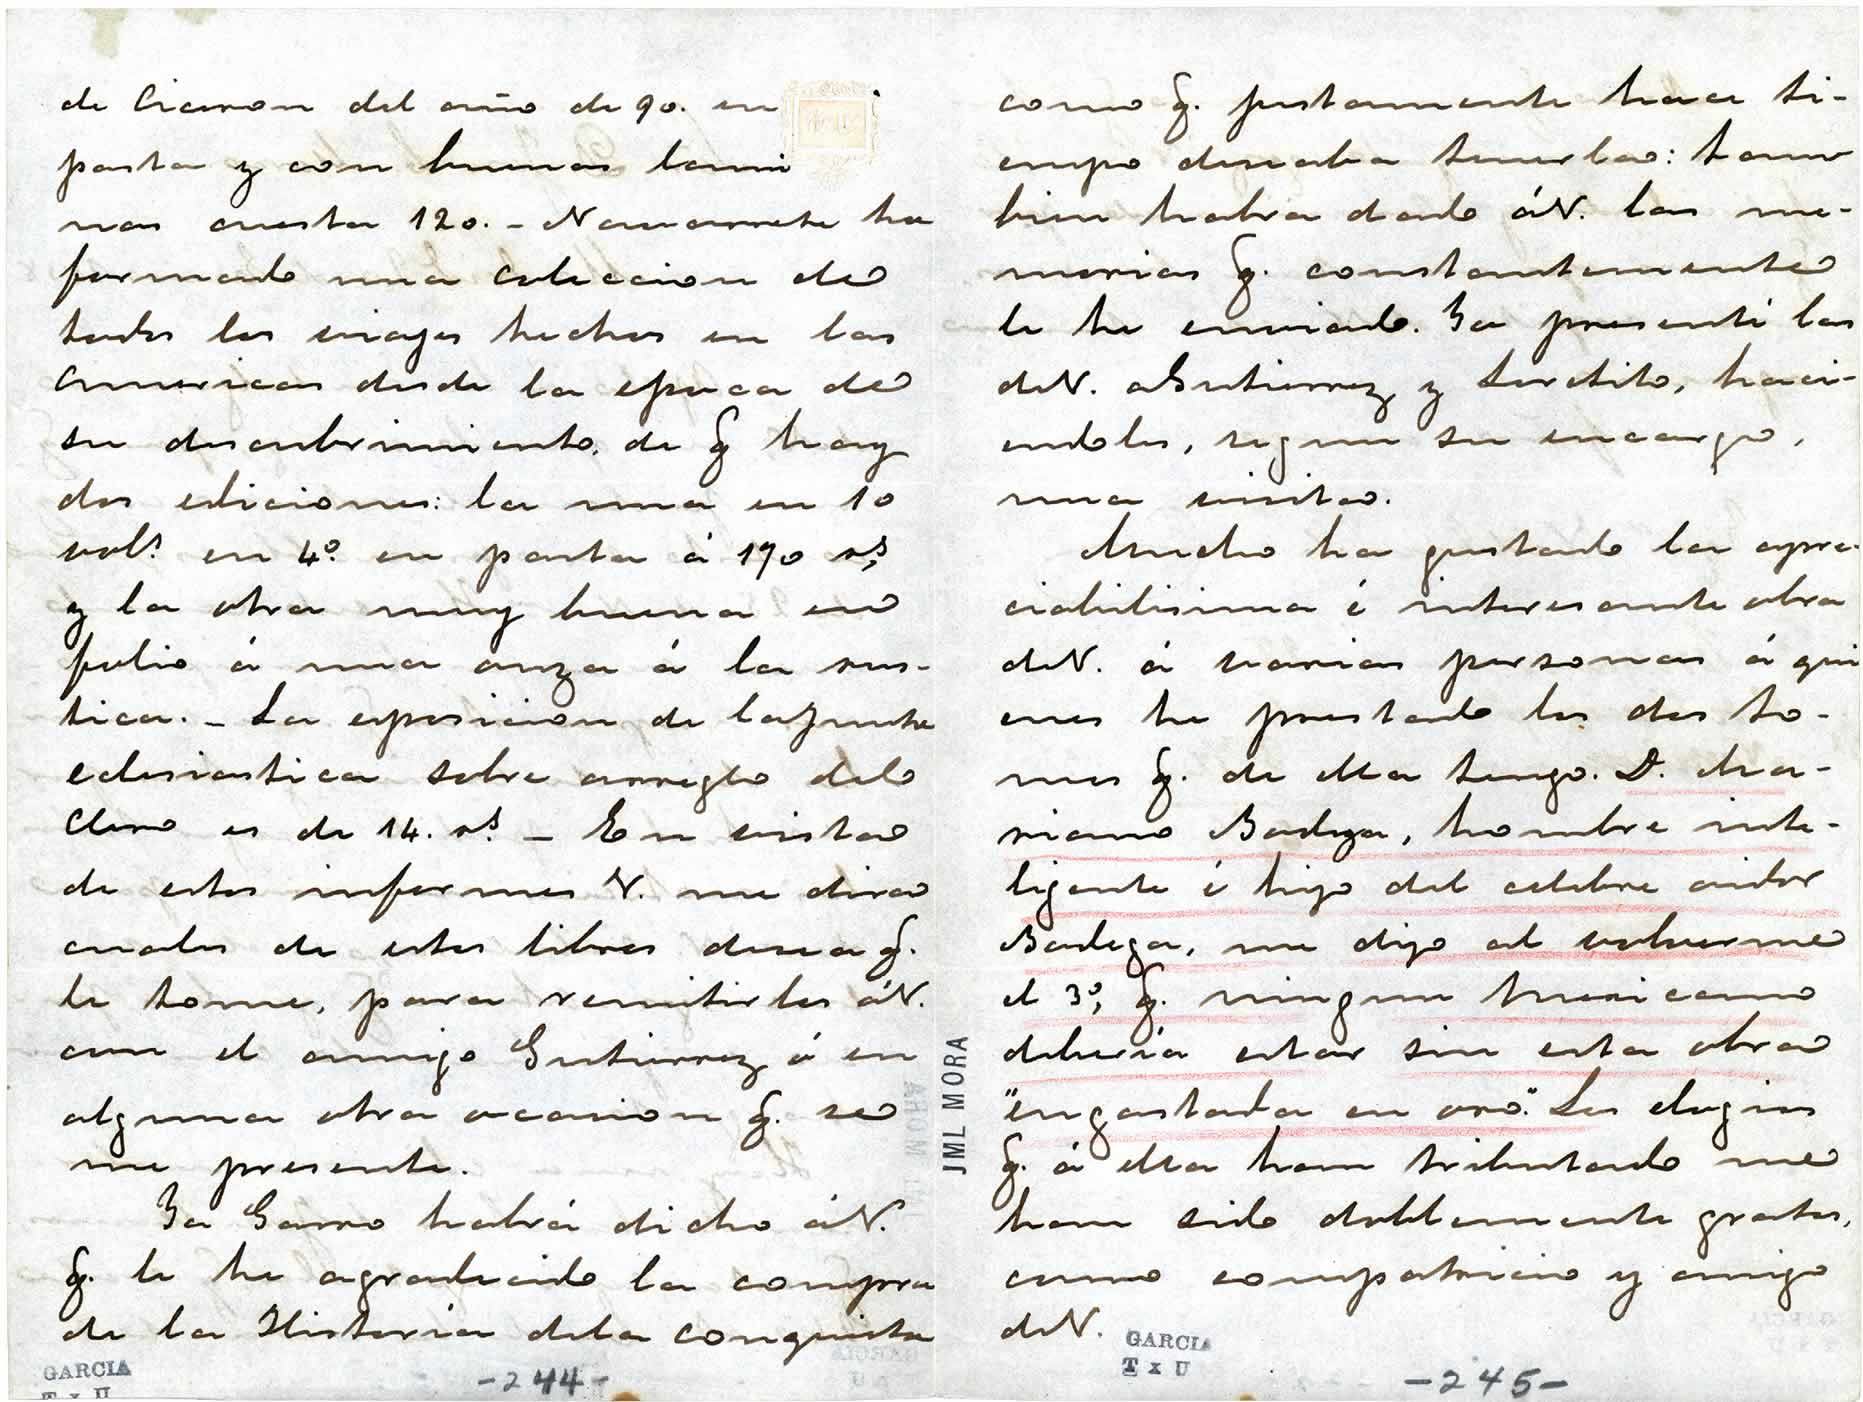 de Ciceron del año de 90. en
pasta y con buenas lami
nas cuesta 120. - Navarrete ha
formado una coleccion de
todos los viages hechos en las
Americas desde la epoca de
su descubrimiento, de q hay
dos ediciones: la una en 10
vol.s en 4.o en pasta á 170 r.s
y la otra muy buena en
folio á una onza á la rus-
tica. - La esposicion de la Junta
eclesiastica sobre arreglo del
Clero es de 14. r.s - En vista
de estos informes V. me dira
cuales de estos libros desea q.
le tome, para remitirlos á V.
con el amigo Gutierrez ó en
alguna otra ocasion q. se
me presente.
Ya Garro habrá dicho á V.
q. le he agradecido la compra
de la Historia de la conquista
GARCIA
-244-
JML MORA
como q. justamente hace ti-
empo deseaba tenerla: tam
bien habra dado á V. las me-
morias q. constantemente
le he enviado. Ya presenté las
de V. a Gutierrez y Lerdito, haci-
endoles, segun su encargo,
una visita.
Mucho ha gustado la apre-
ciabilisima é interesante obra
de V. á varias personas á qui
enes he prestado los dos to-
mos q. de ella tengo. D. Ma-
riano Bodega, hombre inte-
ligente é hijo del celebre oidor
Bodega, me dijo al volverme
el 3.o, q. ningun Mexicano
deberia estar sin esta obra
"engastada en oro". Los elogios
q. á ella han tributado me
han sido doblemente gratos,
como compatricio y amigo
de V.
GARCIA
-245-